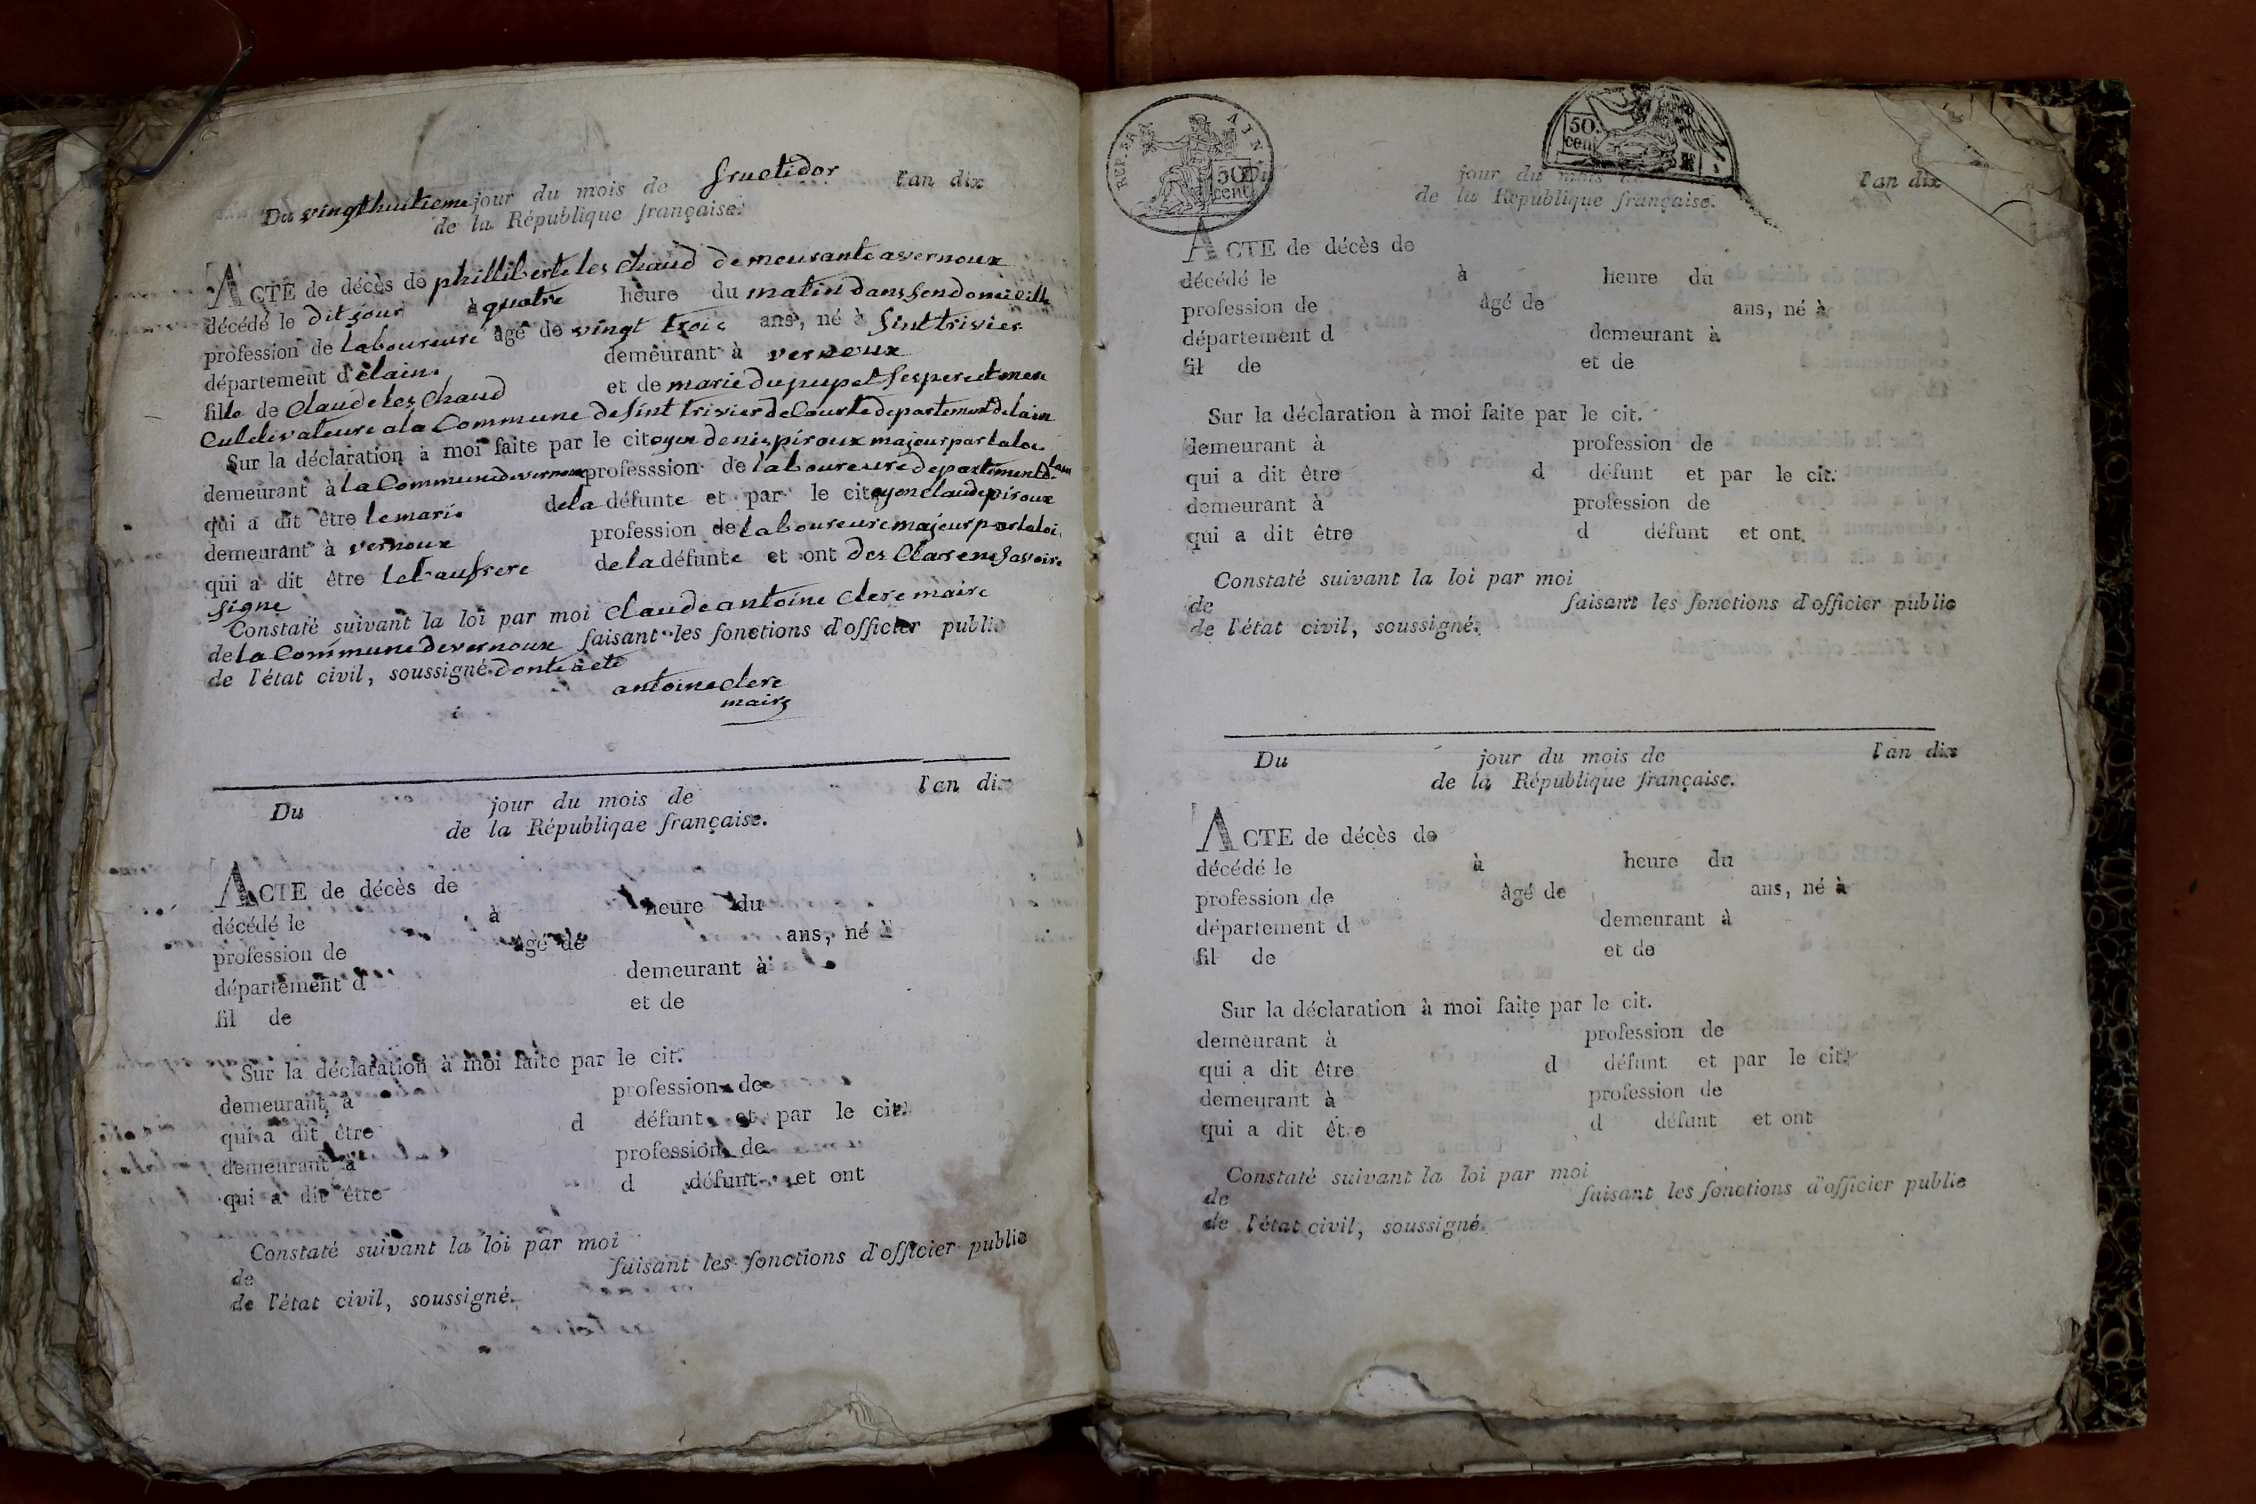 Du vingthuitieme jour du mois de fructidor l'an dix
de la République française.
ACTE de décès de philliberte les Chaud demeurante a vernoux
décédé le dit jour à quatre heure du matin dans son domicille
profession de laboureure âgé de vingt trois ans, né à sint trivier
département d'elain. demeurant à vernoux
fille de Claude les Chaud et de marie dupupet ses pere et mere
Culdivateure a la Commune de sint trivier de Courte departement de lain
Sur la déclaration à moi faite par le citoyen denis piroux majeur par la loi
demeurant à la Commune de vernoux professsion de laboureure departement d. lain
qui a dit être le mari. de la défunte et par le citoyen Claude piroux
demeurant à vernoux profession de laboureure majeur par la loi.
qui a dit être le baufrere de la défunte et ont des Clare ne savoire
signe
Constaté suivant la loi par moi Claude antoine Clere maire
de la Commune de vernoux faisant les fonctions d'officier public
de l'état civil, soussigné. dont acte
antoine Clere
maire
Du jour du mois de l'an dix
de la Républiqae française.
ACTE de décès de
décédé le à heure du
profession de âgé de ans, né à
département d demeurant à
fil de et de
Sur la déclaration à moi faite par le cit.
demeurant à profession de
qui a dit être d défunt et par le cit.
demeurant à profession de
qui a dit être d défunt et ont
Constaté suivant la loi par moi
de faisant les fonctions d'officier public
de l'état civil, soussigné.
REP. FRA
50
cent
50.
cent
Du jour du mois de l'an dix
de la République française.
ACTE de décès de
décédé le à heure du
profession de âgé de ans, né à
département d demeurant à
fil de et de
Sur la déclaration à moi faite par le cit.
demeurant à profession de
qui a dit être d défunt et par le cit.
demeurant à profession de
qui a dit être d défunt et ont
Constaté suivant la loi par moi
de faisant les fonctions d'officier public
de l'état civil, soussigné.
Du jour du mois de l'an dix
de la République française.
ACTE de décès de
décédé le à heure du
profession de âgé de ans, né à
département d demeurant à
fil de et de
Sur la déclaration à moi faite par le cit.
demeurant à profession de
qui a dit être d défunt et par le cit.
demeurant à profession de
qui a dit être d défunt et ont
Constaté suivant la loi par moi
de faisant les fonctions d'officier public
de l'état civil, soussigné.